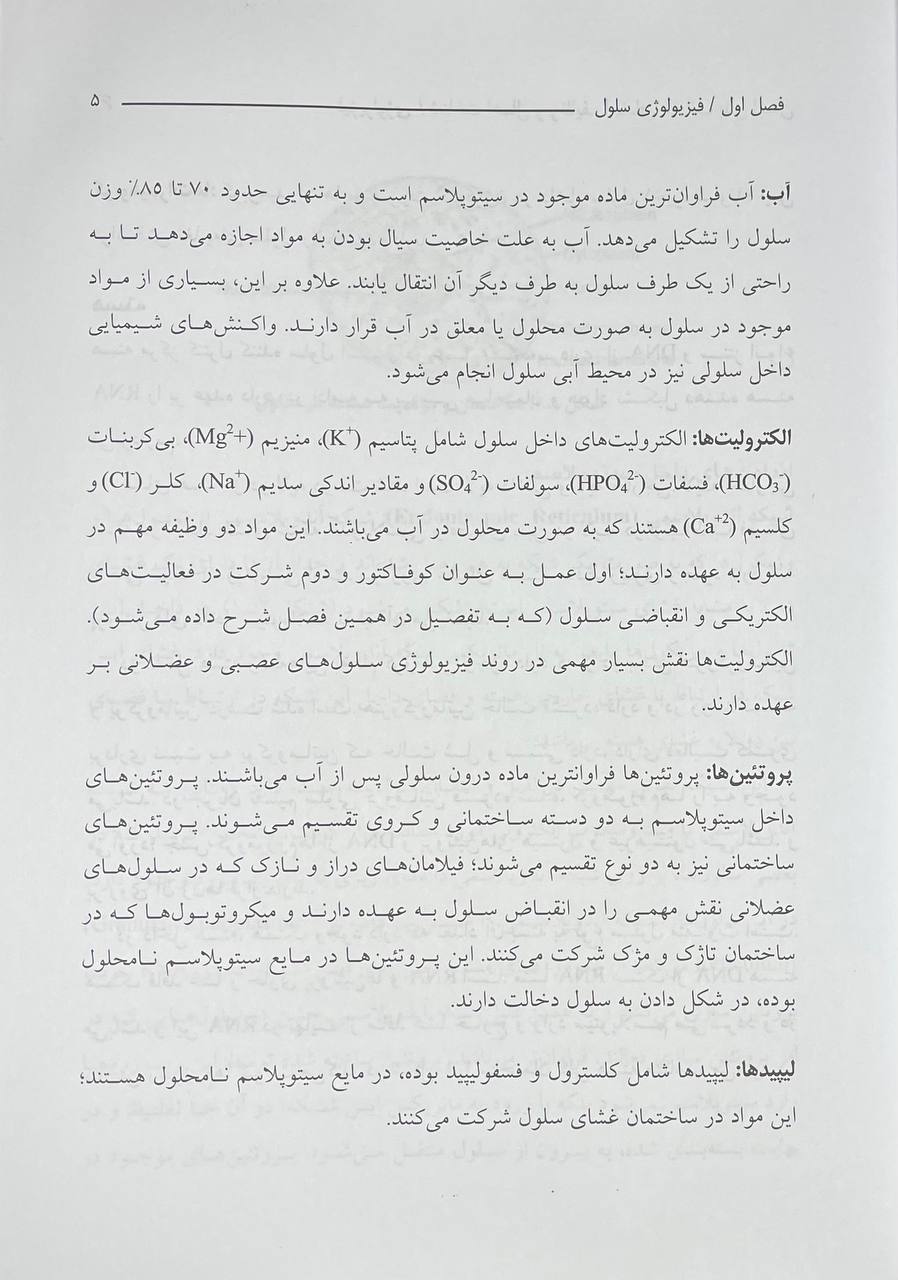 فصل اول / فیزیولوژی سلول ۵
آب: آب فراوان‌ترین ماده موجود در سیتوپلاسم است و به تنهایی حدود ۷۰ تا ۸۵٪ وزن
سلول را تشکیل می‌دهد. آب به علت خاصیت سیال بودن به مواد اجازه می‌دهد تا به
راحتی از یک طرف سلول به طرف دیگر آن انتقال یابند. علاوه بر این، بسیاری از مواد
موجود در سلول به صورت محلول یا معلق در آب قرار دارند. واکنش‌های شیمیایی
داخل سلولی نیز در محیط آبی سلول انجام می‌شود.
الکترولیت‌ها: الکترولیت‌های داخل سلول شامل پتاسیم (K⁺)، منیزیم (Mg²⁺)، بی‌کربنات
(HCO₃⁻)، فسفات (HPO₄²⁻)، سولفات (SO₄²⁻) و مقادیر اندکی سدیم (Na⁺)، کلر (Cl⁻) و
کلسیم (Ca⁺²) هستند که به صورت محلول در آب می‌باشند. این مواد دو وظیفه مهم در
سلول به عهده دارند؛ اول عمل به عنوان کوفاکتور و دوم شرکت در فعالیت‌های
الکتریکی و انقباضی سلول (که به تفصیل در همین فصل شرح داده می‌شود).
الکترولیت‌ها نقش بسیار مهمی در روند فیزیولوژی سلول‌های عصبی و عضلانی بر
عهده دارند.
پروتئین‌ها: پروتئین‌ها فراوانترین ماده درون سلولی پس از آب می‌باشند. پروتئین‌های
داخل سیتوپلاسم به دو دسته ساختمانی و کروی تقسیم می‌شوند. پروتئین‌های
ساختمانی نیز به دو نوع تقسیم می‌شوند؛ فیلامان‌های دراز و نازک که در سلول‌های
عضلانی نقش مهمی را در انقباض سلول به عهده دارند و میکروتوبول‌ها که در
ساختمان تاژک و مژک شرکت می‌کنند. این پروتئین‌ها در مایع سیتوپلاسم نامحلول
بوده، در شکل دادن به سلول دخالت دارند.
لیپیدها: لیپیدها شامل کلسترول و فسفولیپید بوده، در مایع سیتوپلاسم نامحلول هستند؛
این مواد در ساختمان غشای سلول شرکت می‌کنند.